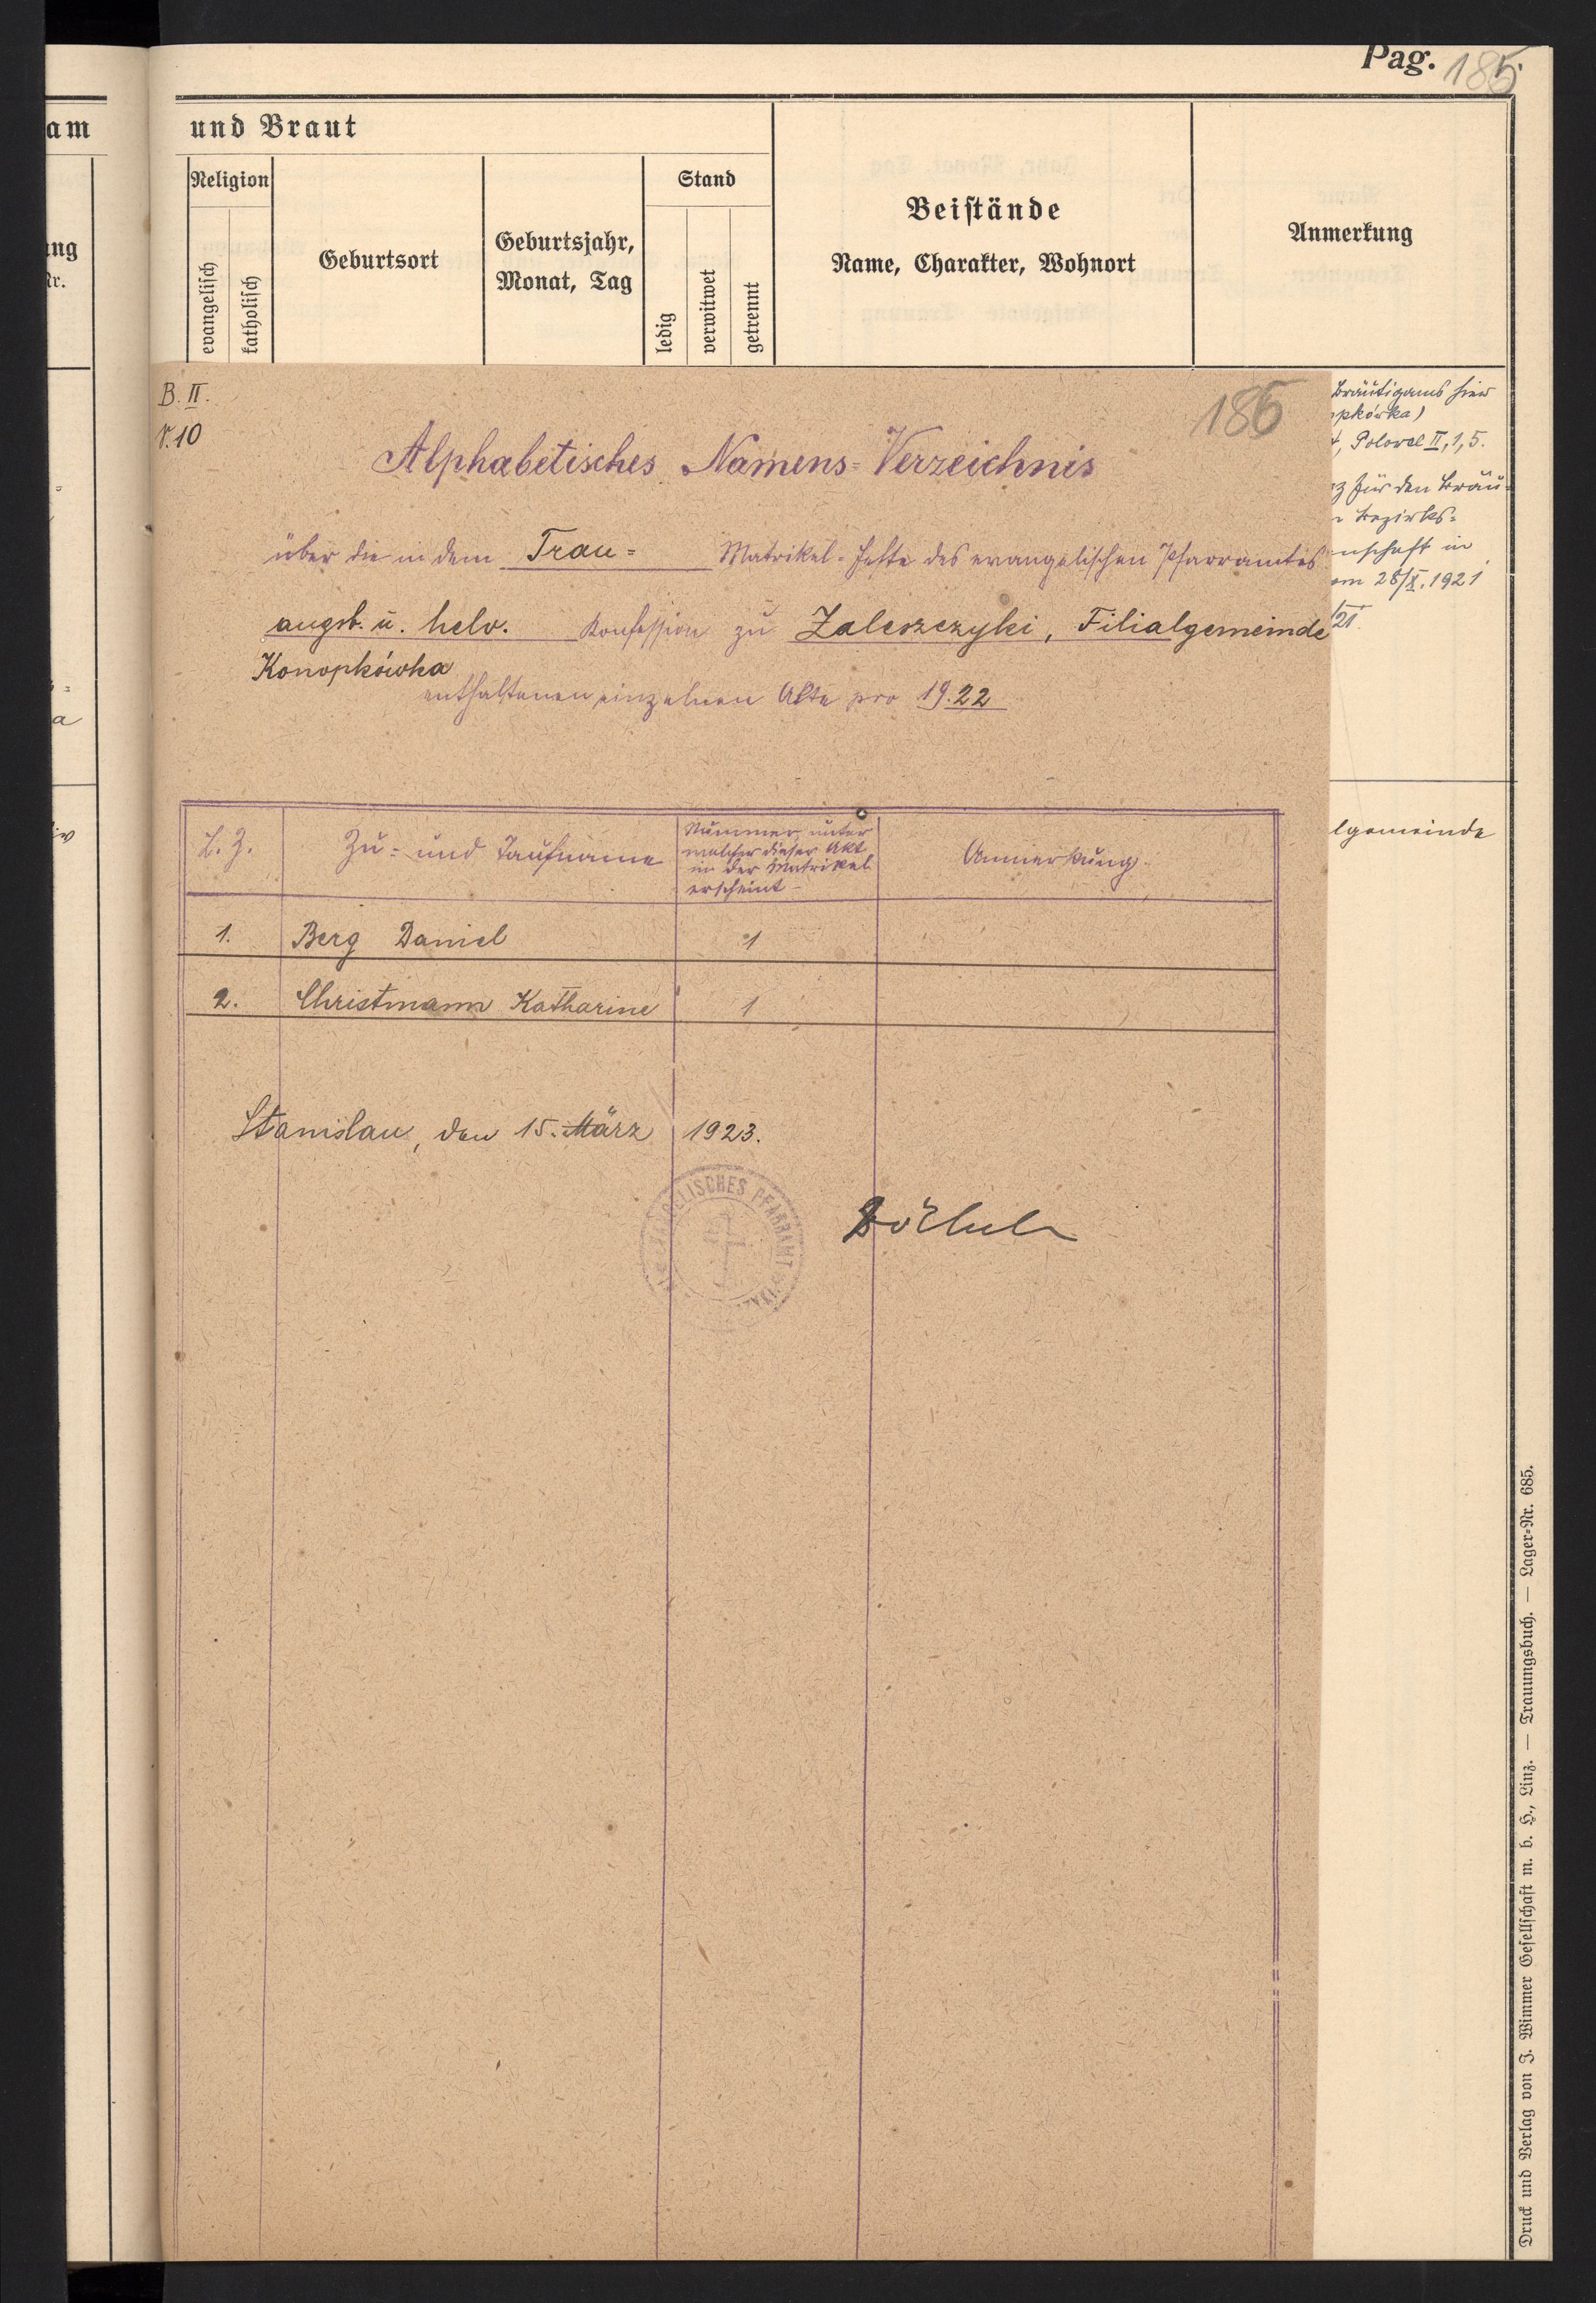 Pag. 185
am
und Braut
Religion
Stand
ng
Nr.
evangelisch
katholisch
Geburtsort
Geburtsjahr,
Monat, Tag
ledig
verwitwet
getrennt
Beistände
Name, Charakter, Wohnort
Anmerkung
B. II.
V.10
186
Alphabetisches Namens-Verzeichnis
über die in dem Trau= Matrikel-Hefte des evangelischen Pfarramtes
augsb. u. helv. Konfession zu Zaleszczyki, Filialgemeinde
Konopkówka
enthaltenen einzelnen Akte pro 1922
Bräutigams hier
opkówka)
Polowce II, 1, 5.
z für den Bräu-
Bezirks-
nschaft in
om 28/X. 1921
/21.
lgemeinde
a
L. Z.
Zu- und Taufname
Nummer, unter
welcher dieser Akt
in der Matrikel
erscheint
Anmerkung.
1. Berg Daniel 1
2. Christmann Katharine 1
Stanislau, den 15. März 1923.
EVANGELISCHES PFARRAMT
Druck und Verlag von J. Wimmer Gesellschaft m. b. H., Linz. — Trauungsbuch. — Lager-Nr. 685.